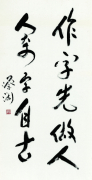 作字先做人
人奇字自古
蔡瀾